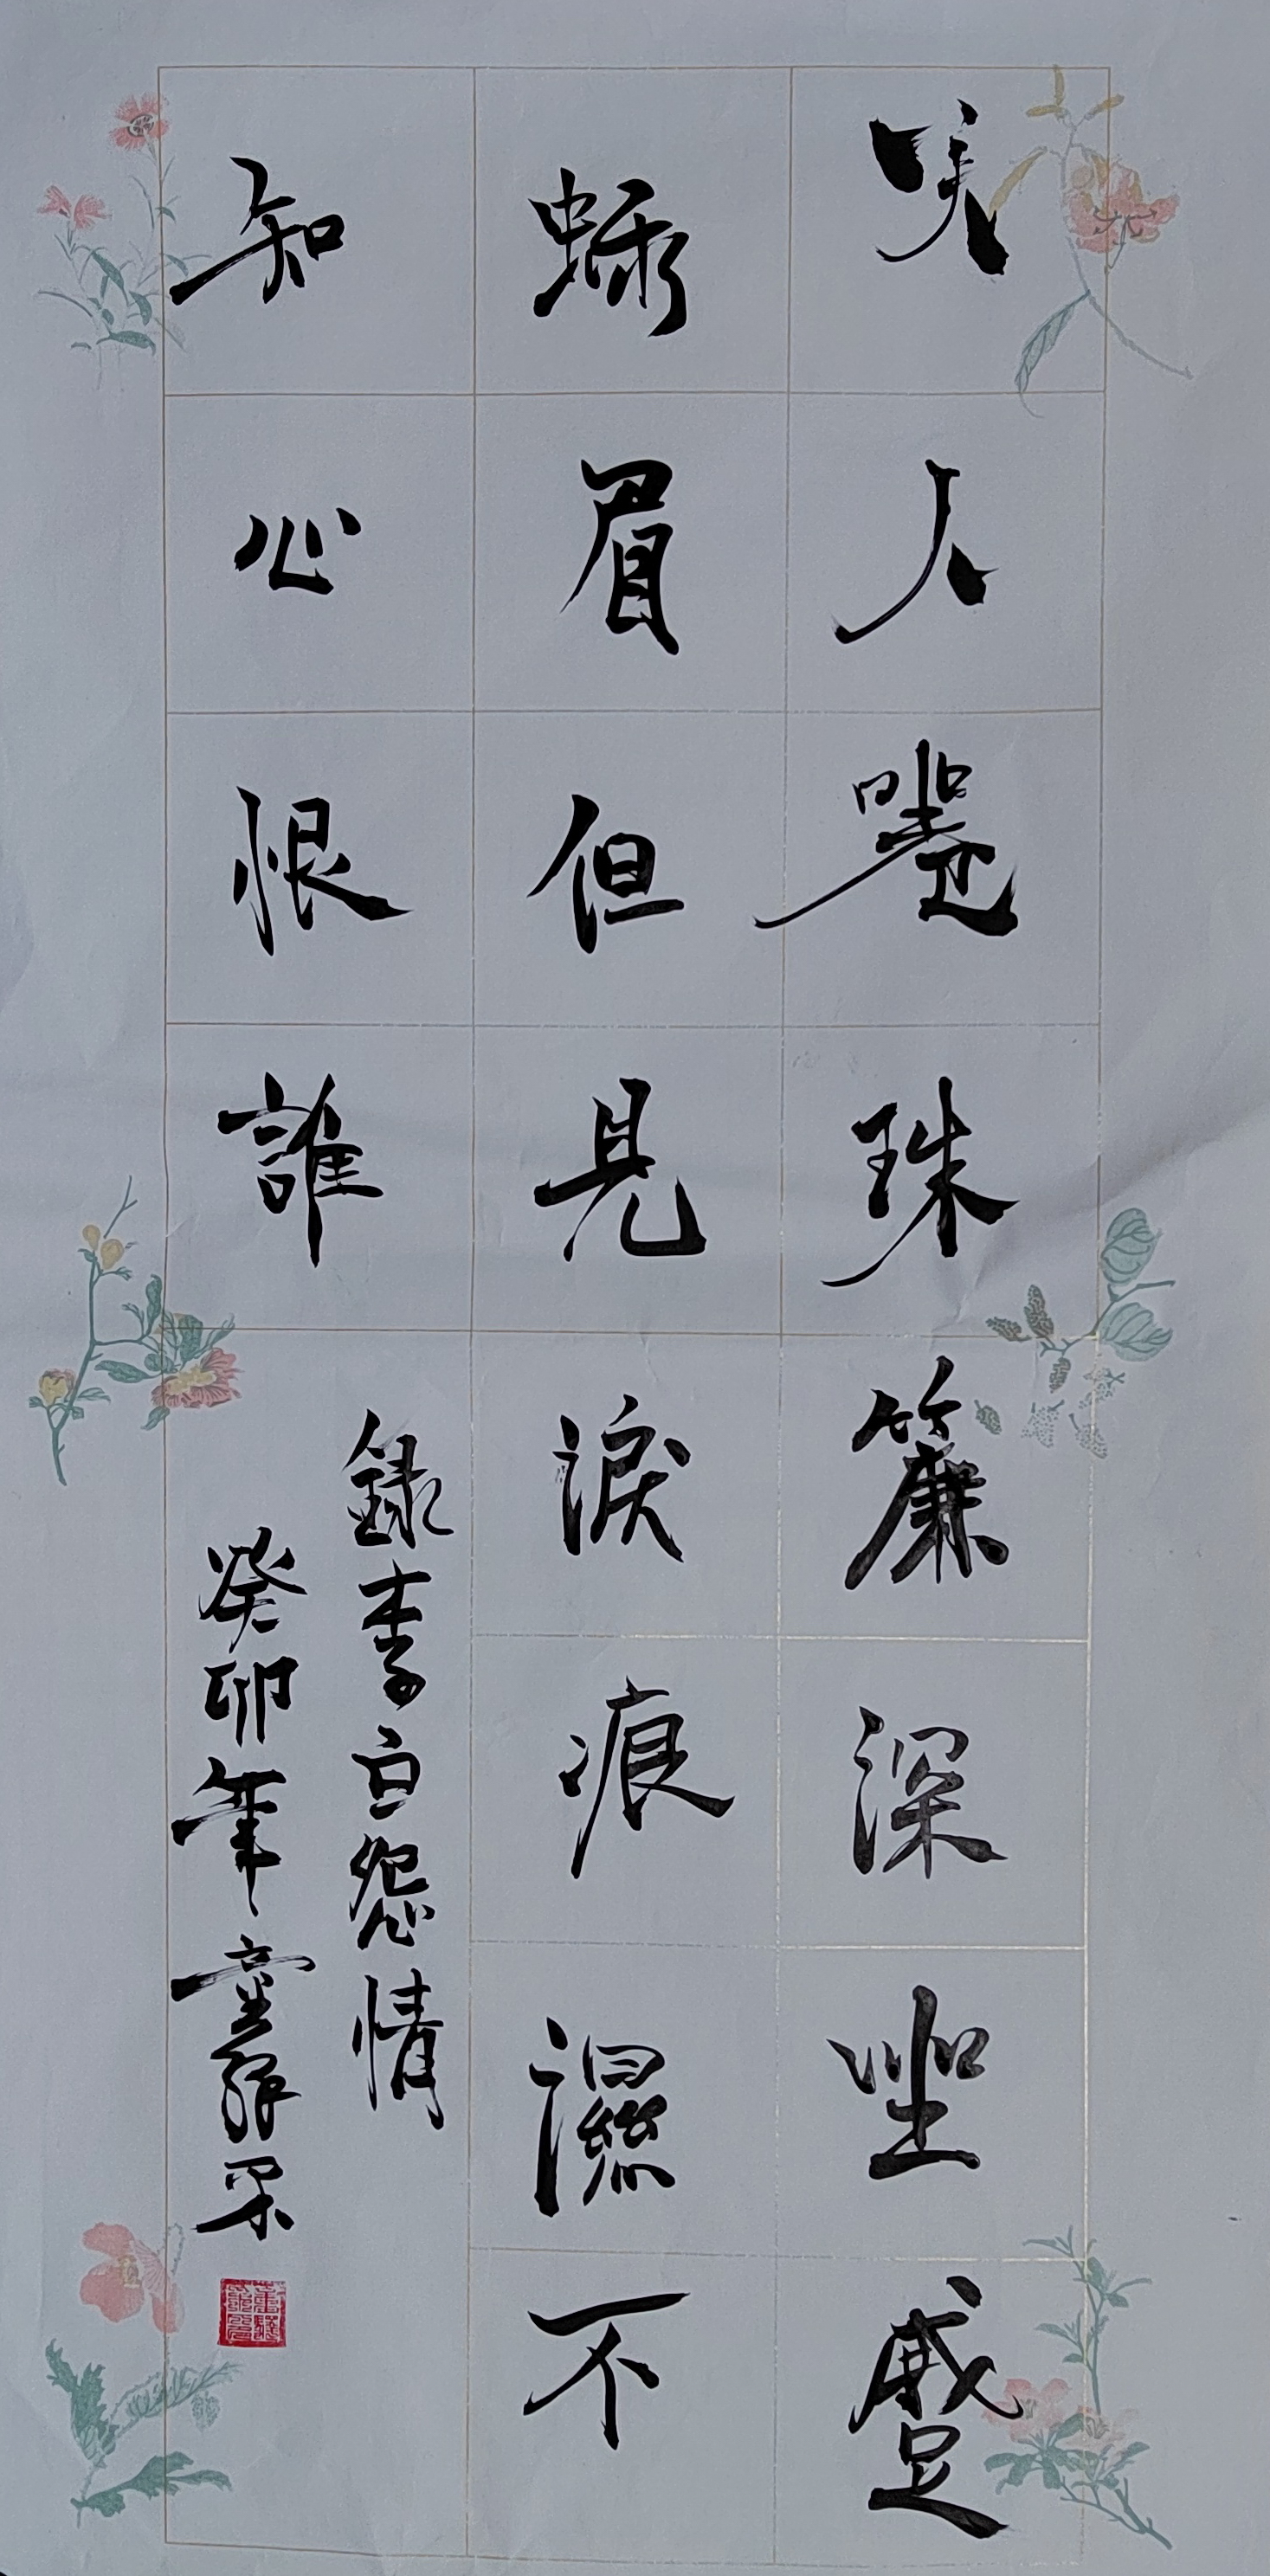 美人捲珠簾深坐蹙
蛾眉但見淚痕濕不
知心恨誰
錄李白怨情
癸卯年童